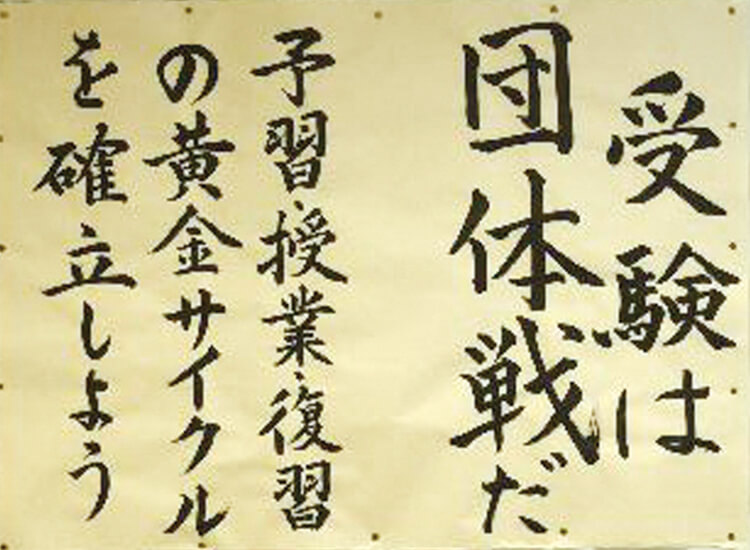 受験は
団体戦だ
予習、授業、復習
の黄金サイクル
を確立しよう